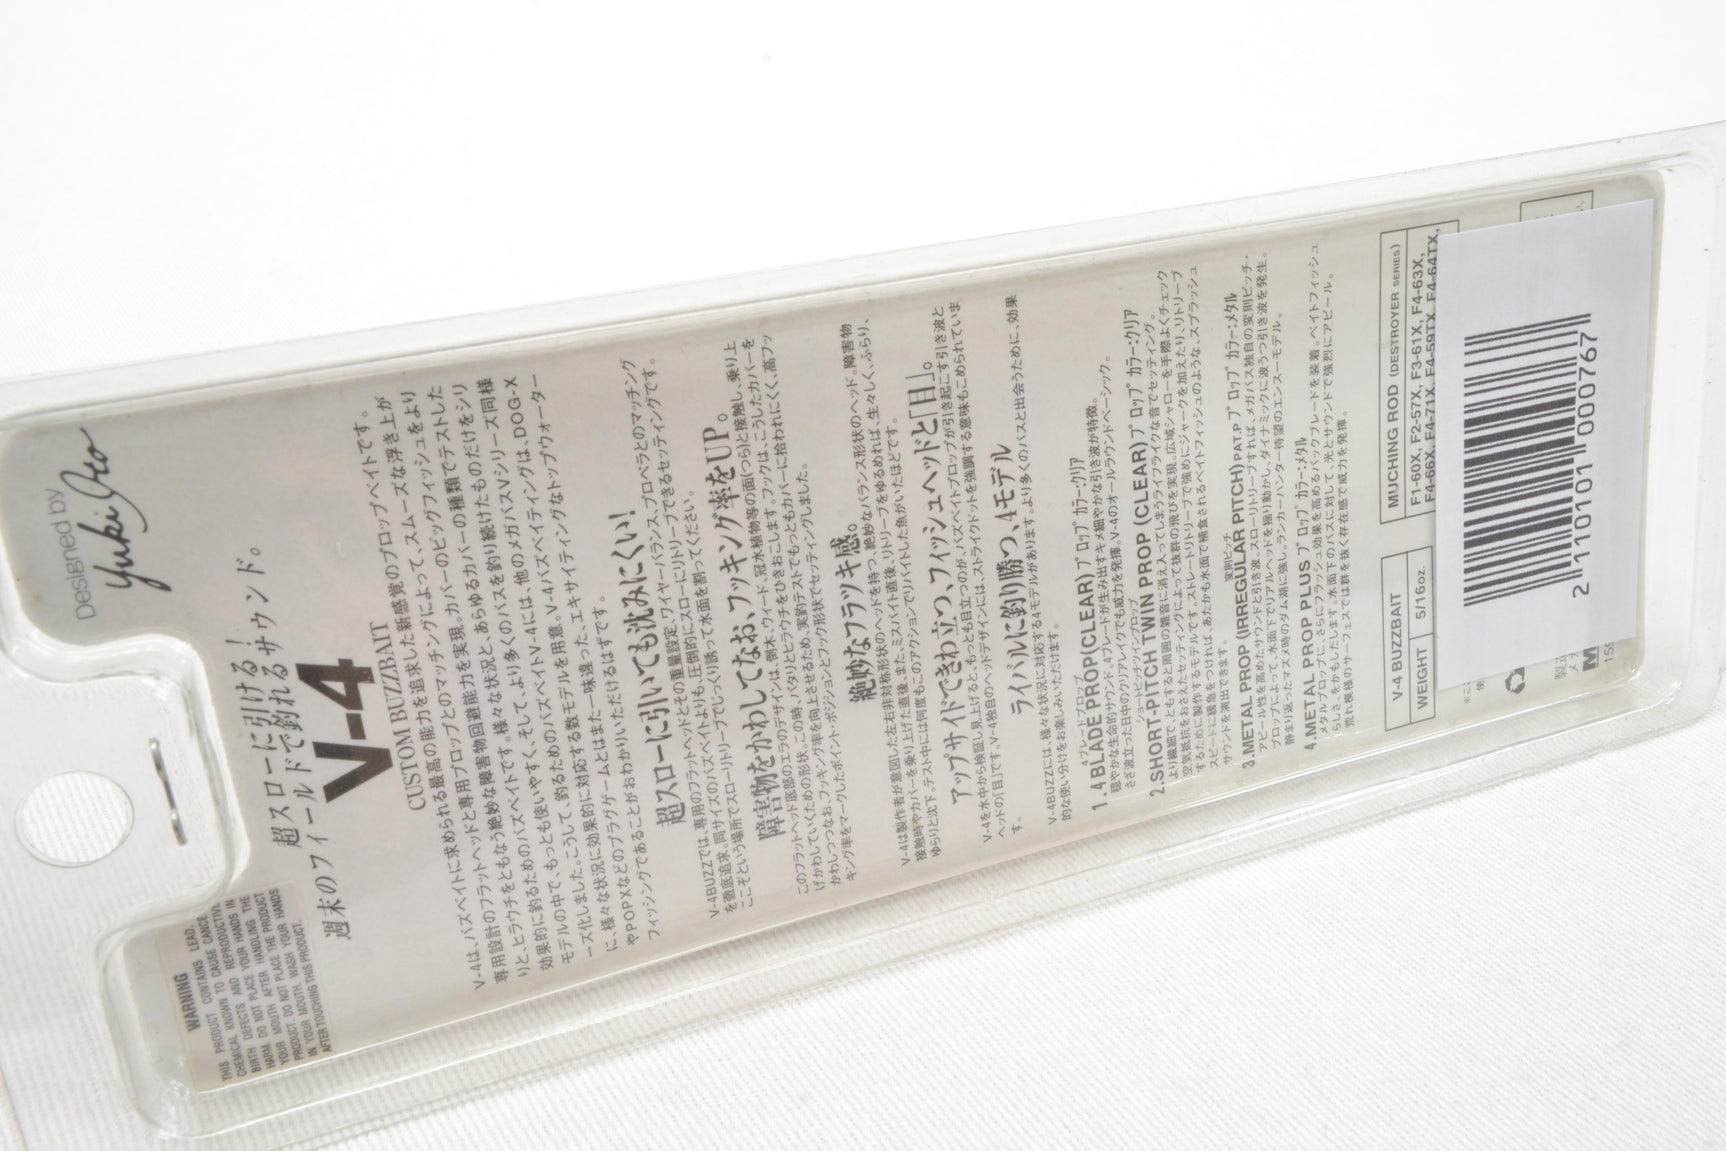 Designed by
Yuki Ito
WARNING
THIS PRODUCT CONTAINS LEAD,
CHEMICAL KNOWN TO CAUSE CANCE
BIRTH DEFECTS AND REPRODUCTIVE
HARM. DO NOT PLACE YOUR HANDS IN
YOUR MOUTH AFTER HANDLING THE
PRODUCT. DO NOT PLACE THE PRODUCT
IN YOUR MOUTH. WASH YOUR HANDS
AFTER TOUCHING THIS PRODUCT.
超スローに引ける!
週末のフィールドで釣れるサウンド。
V-4
CUSTOM BUZZBAIT
V-4は、バズベイトに求められる最高の能力を追求した新感覚のプロップベイトです。
専用設計のフラットヘッドと専用プロップとのマッチングによって、スムーズな浮き上が
りと、ヒラウチをともなう絶妙な障害物回避能力を実現。カバーのビッグフィッシュをより
効果的に釣るためのバズベイトです。様々な状況と、あらゆるカバーの種類でテストした
モデルの中で、もっとも使いやすく、そして、より多くのバスを釣り続けたものだけをシリ
ーズ化しました。こうして、釣るためのバズベイトV-4には、他のメガバスVシリーズ同様
に、様々な状況に効果的に対応する数モデルを用意。V-4バズベイティングは、DOG-X
やPOPXなどのプラグゲームとはまた一味違った、エキサイティングなトップウォーター
フィッシングであることがおわかりいただけるはずです。
超スローに引いても沈みにくい!
V-4BUZZでは、専用のフラットヘッドとその重量設定、ワイヤーバランス、プロペラとのマッチング
を徹底追求。同サイズのバズベイトよりも、圧倒的にスローにリトリーブできるセッティングです。
ここぞという場所でスローリトリーブでじっくり誘って水面を割ってください。
障害物をかわしてなお、フッキング率をUP。
このフラットヘッド底部のエラのデザインは、倒木、ウィード、冠水植物等の面(つら)と接触し、乗り上
げかわしていくための形状。この時、パタリとヒラウチをひきおこします。フックは、こうしたカバーを
かわしつつなお、フッキング率を向上させるため、実釣テストでもっともカバーに拾われにくく、高フッ
キング率をマークしたポイント・ポジションとフック形状でセッティングしました。
絶妙なフラツキ感。
V-4は製作者が意図した左右非対称形状のヘッドを持つ、絶妙なバランス形状のヘッド。障害物
接触時やカバーを乗り上げた直後、また、ミスバイト直後、リトリーブをゆるめれば、生々しく、ふらり、
ゆらりと沈下。テスト中には何度もこのアクションでリバイトした魚がいたほどです。
アップサイドできわ立つ、フィッシュヘッドと「目」。
V-4を水中から検証し見上げると、もっとも目立つのが、バズベイトプロップが引き起こす引き波と
ヘッドの「目」です。V-4独自のヘッドデザインには、ストライクドットを強調する意味もこめられていま
す。
ライバルに釣り勝つ、4モデル
V-4BUZZには、様々な状況に対応する4モデルがあります。より多くのバスと出会うために、効果
的な使い分けをお楽しみいただけます。
4ブレードプロップ
1. 4 BLADE PROP(CLEAR) プロップ カラー:クリア
穏やかな生命的サウンド。4ブレードが生み出すキメ細やかな引き波が特徴。
さざ波立った日中のクリアレイクでも威力を発揮。V-4のオールラウンドベーシック。
ショートピッチツインプロップ
2.SHORT-PITCH TWIN PROP (CLEAR) プロップ カラー:クリア
より繊細で、ともすると周囲の雑音に消え入ってしまうライフライクな音でセッティング。
空気抵抗をおさえたセッティングによって抜群の飛びを実現。広域シャローを手際よくチェック
するために製作するモデルです。ストレートリトリーブで強めにジャークを加えたり、リトリーブ
スピードに緩急をつければ、あたかも水面で補食されるベイトフィッシュのような、スプラッシュ
サウンドを演出できます。
変則ピッチ
3.METAL PROP (IRREGULAR PITCH)PAT.P プロップ カラー:メタル
アピール性を高めたサウンドと引き波。スローリトリーブすれば、メガバス独自の変則ピッチ・
プロップによって、水面下でリアルヘッドを揺り動かし、ダイナミックに波うつ引き波を発生。
静まり返ったマズメ時のダム湖に強し。ランカーハンター待望のエンスーモデル。
4.METAL PROP PLUS プロップ カラー:メタル
メタルプロップに、さらにフラッシュ効果を高めるバックブレードを装着。ベイトフィッシュ
らしさ、をかもしだします。水面下のバスに対して、光とサウンドで強烈にアピール。
荒れ模様のサーフェスでは群を抜く存在感で威力を発揮。
V-4 BUZZBAIT
WEIGHT 5/16oz.
MUCHING ROD (DESTROYER SERIES)
F1-60X, F2-57X, F3-61X, F4-63X,
F4-66X, F4-71X, F4-59TX, F4-64TX,
2 110101 000767